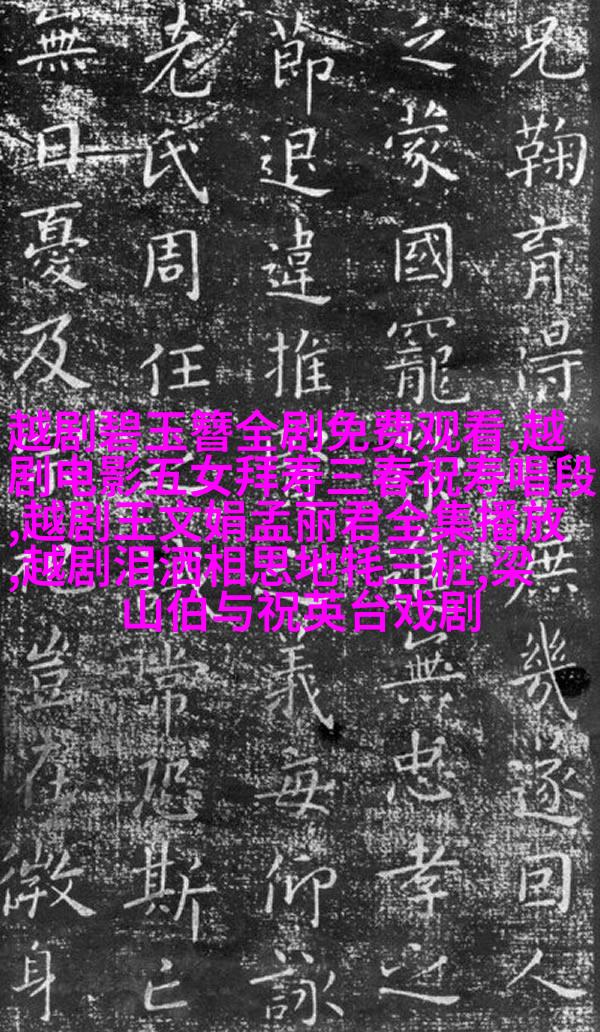 兄鞠育得無幾遂回人
之蒙國寵無忠孝之
節退違推義每仰詠
老氏周任常恐斯亡
無日憂及豈在微身
越剧碧玉簪全剧免费观看,越
剧电影五女拜寿三春祝寿唱段
,越剧王文娟孟丽君全集播放
,越剧泪洒相思地牦三桩,梁
山伯与祝英台戏剧